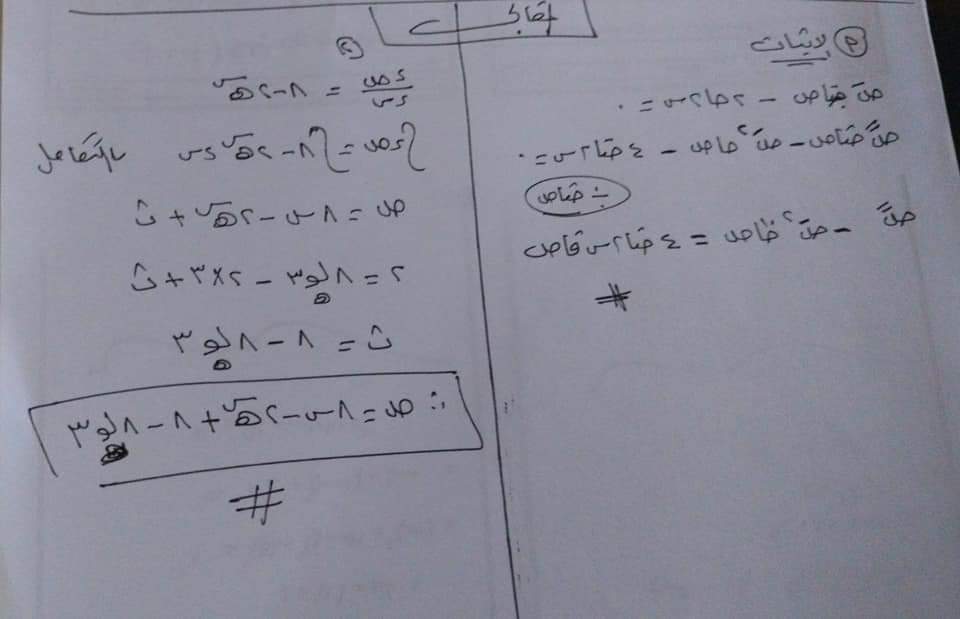 (٣) لإثبات
صَ جتاص - ٢ جا٢س = ٠
صً جتاص - صَ² جاص - ٤ جتا٢س = ٠
÷ جتاص
صً - صَ² ظاص = ٤ جتا٢س قاص
#
(٢)
ءص/ءس = ٨ - ٢هـ^س
∫ءص = ∫٨ - ٢هـ^س ءس بالتكامل
ص = ٨س - ٢هـ^س + ث
٢ = ٨لو_هـ ٣ - ٢×٣ + ث
ث = ٨ - ٨لو_هـ ٣
∴ ص = ٨س - ٢هـ^س + ٨ - ٨لو_هـ ٣
#